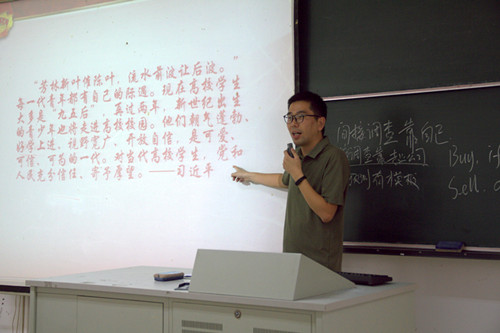 “芳林新叶催陈叶，流水前波让后波。”
每一代青年都有自己的际遇。现在高校学生
大多是“九五后”，再过两年，新世纪出生
的青少年也将走进高校校园。他们朝气蓬勃、
好学上进、视野宽广、开放自信，是可爱、
可信、可为的一代。对当代高校学生，党和
人民充分信任、寄予厚望。——习近平
间接调查靠自己
调查靠
预测需模板
Buy. if
Sell.